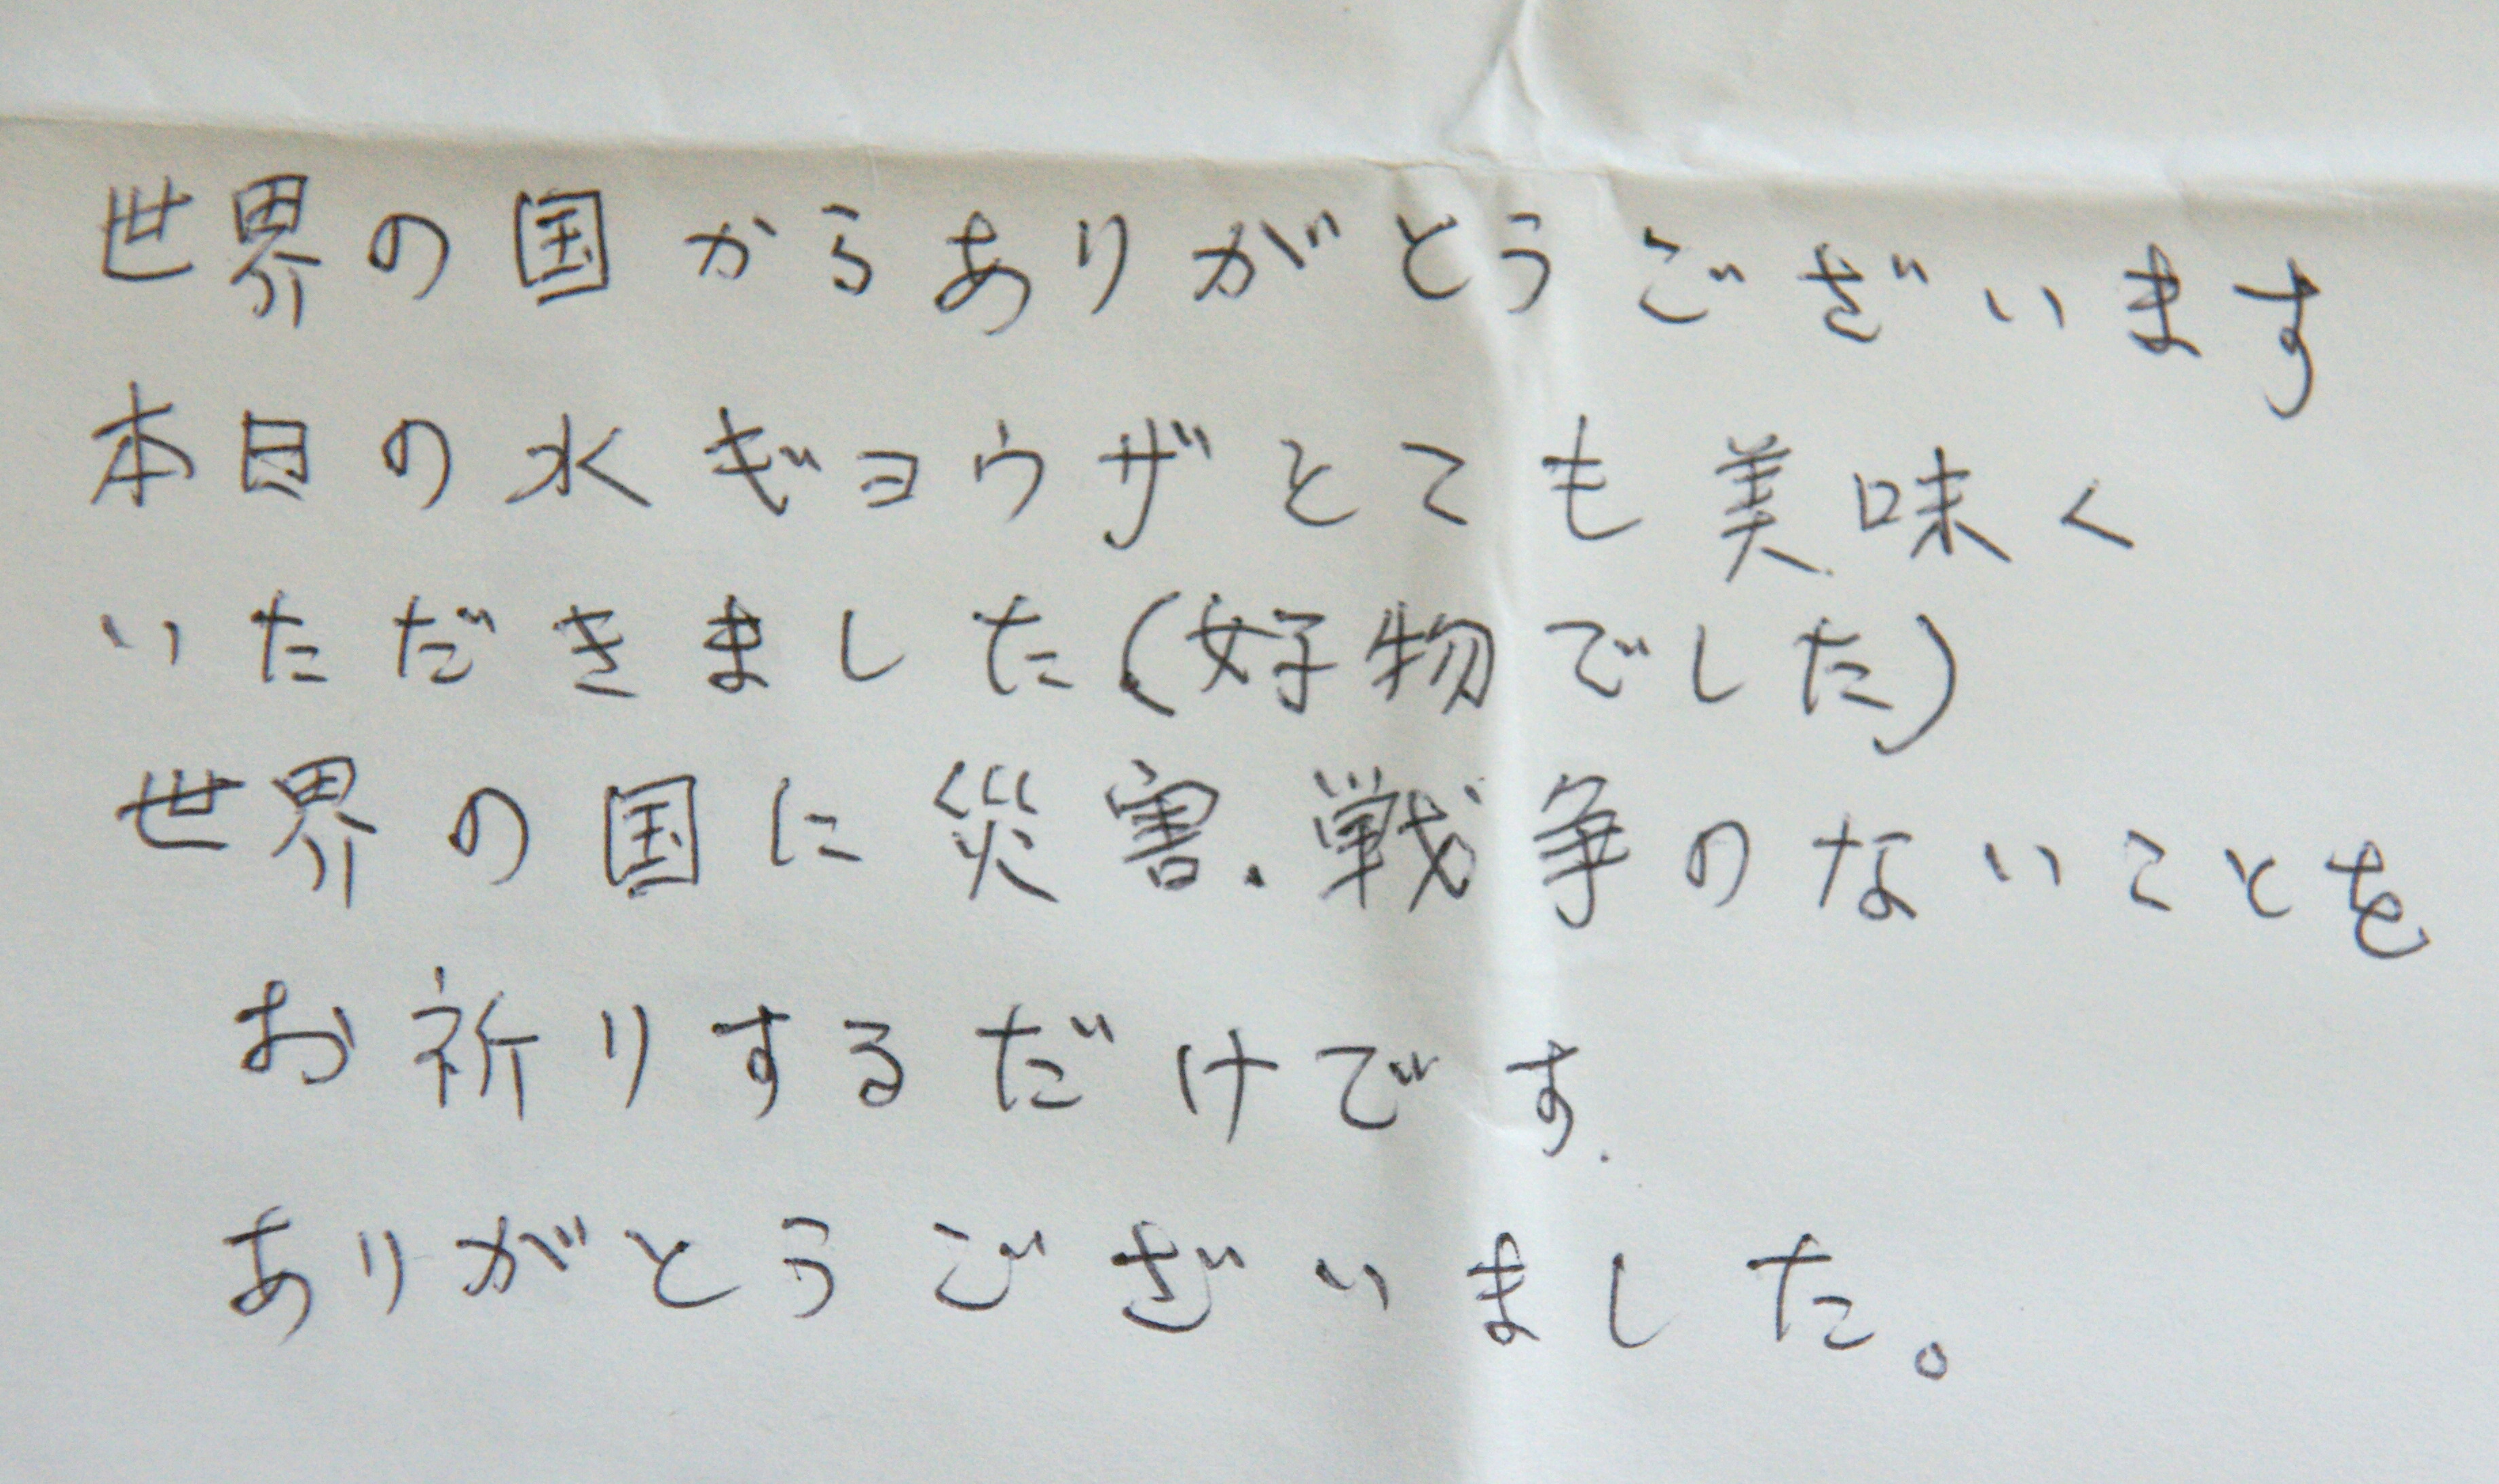 世界の国からありがとうございます
本日の水ギョウザとても美味く
いただきました(好物でした)
世界の国に災害.戦争のないことを
お祈りするだけです.
ありがとうございました。